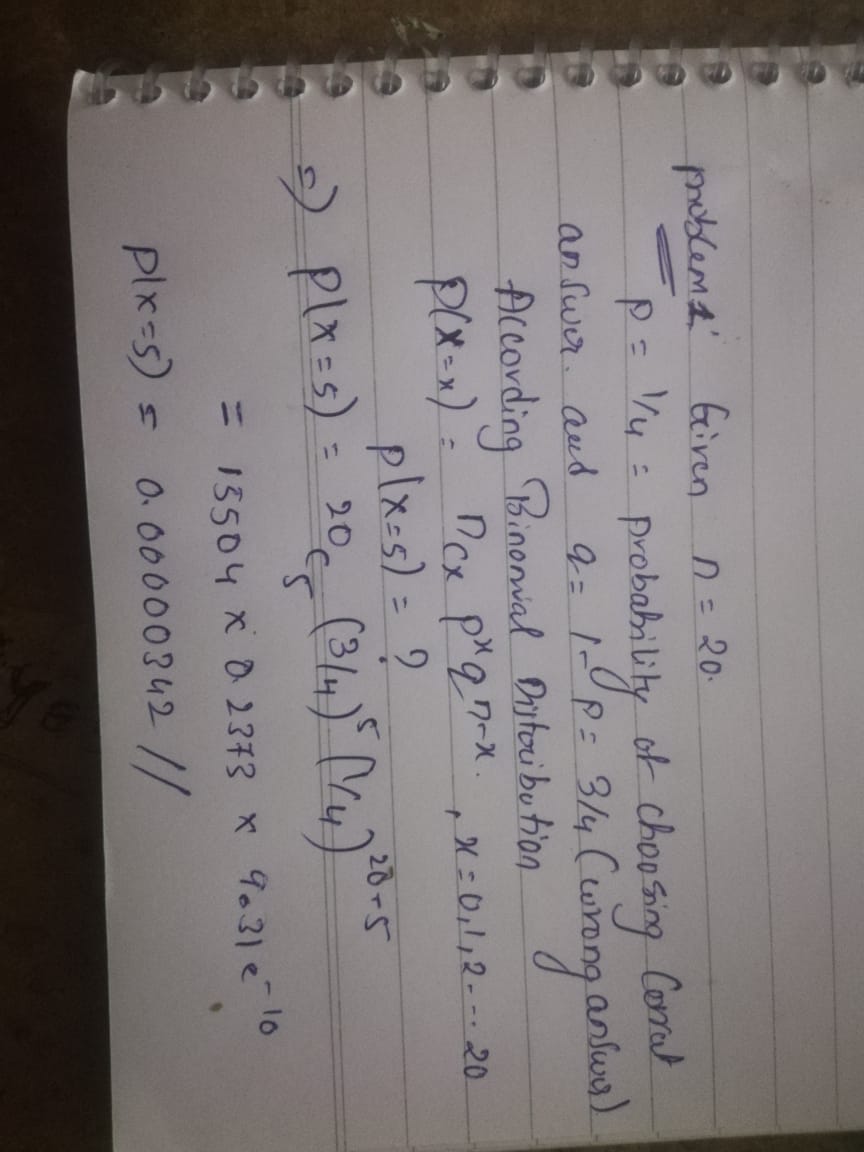 problem1: Given n = 20.
p = 1/4 = probability of choosing Correct
answer. and q = 1 - p = 3/4 (wrong answer)
According Binomial Distribution
P(X=x) = nCx p^x q^n-x. , x = 0,1,2--- 20
p(x=5) = ?
=> P(x=5) = 20C5 (3/4)^5 (1/4)^20-5
= 15504 x 0.2373 x 9.31e^-10
p(x=5) = 0.00000342 //